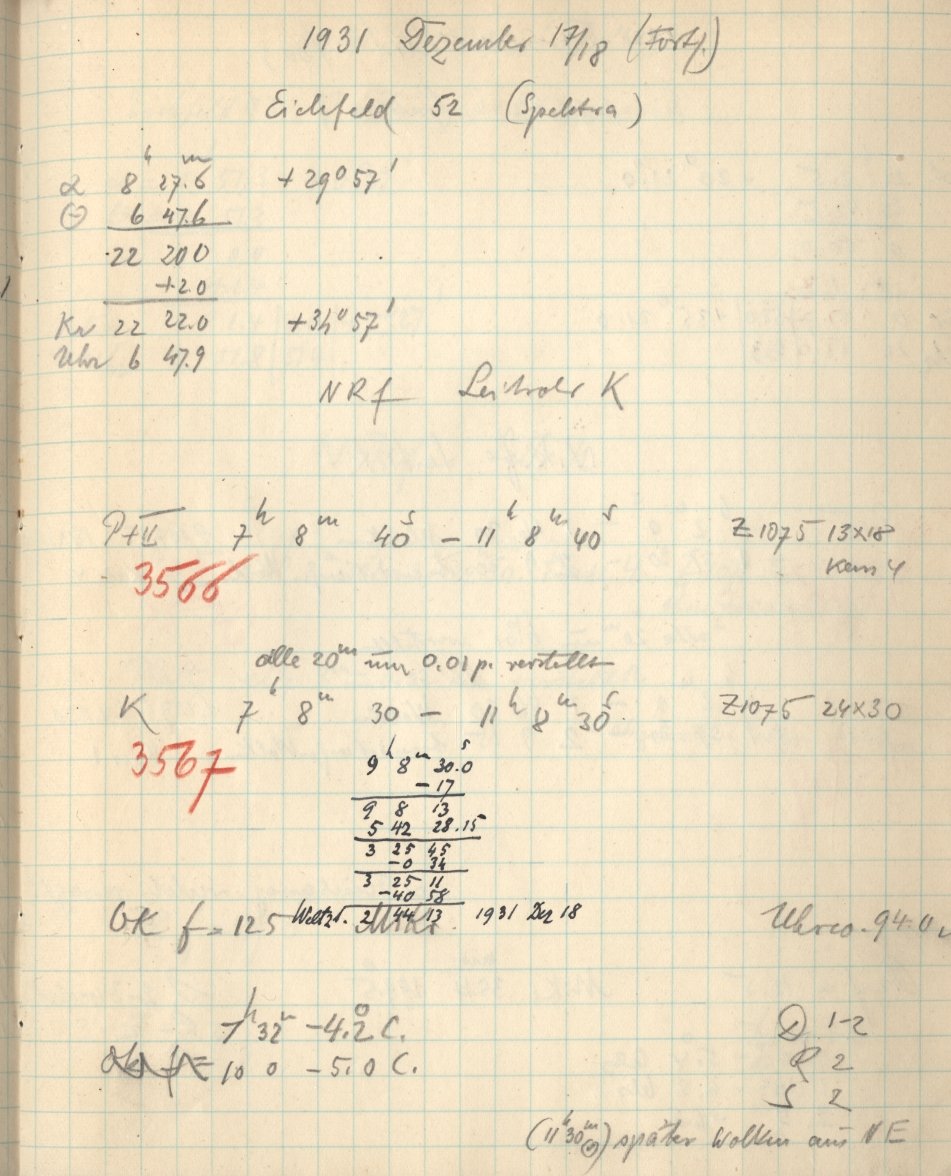 1931 Dezember 17/18 (Forts.)
Eichfeld 52 (Spektra)
α 8ʰ 27.6ᵐ +29° 57'
Θ 6 47.6
22 20 0
+2.0
Kr 22 22.0 +34° 57'
Uhr 6 47.9
NRf Leitrohr K
P+II 7ʰ 8ᵐ 40ˢ – 11ʰ 8ᵐ 40ˢ Z1075 13x18
3566 Kass 4
alle 20ᵐ um 0.01 p. verstellt
K 7ʰ 8ᵐ 30 – 11ʰ 8ᵐ 30ˢ Z1075 24x30
3567
9ʰ 8ᵐ 30.0ˢ
-17
9 8 13
5 42 28.15
3 25 45
-0 34
3 25 11
-40 58
OK f= 125 Weltzt. 2 44 13 1931 Dez 18 Uhrco. 94.0
7ʰ 32ᵐ -4.2° C.
10 0 -5.0 C.
D 1-2
R 2
S 2
(11ʰ30ᵐ Θ) später Wolken aus NE